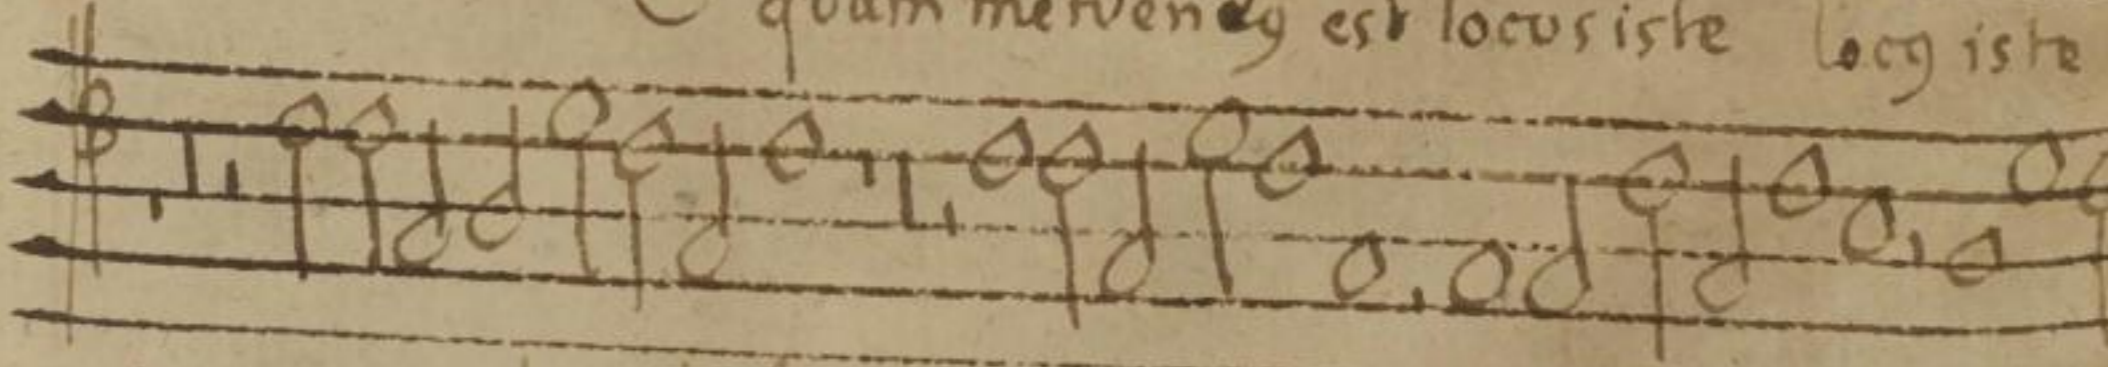 O quam metuendꝯ est locus iste locꝯ iste